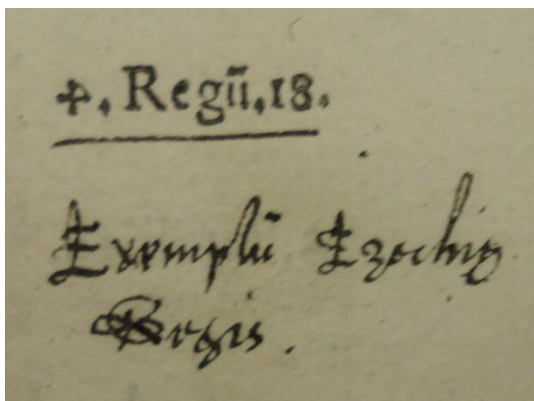 4. Regū.18.
Exemplū Ezechię
Regis.